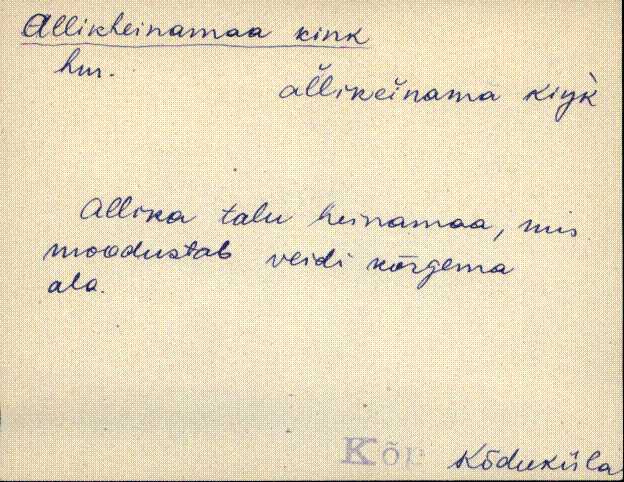 Allikheinamaa kink
hm.
al̆likei̯nama kiŋ̀k
Allika talu heinamaa, mis
moodustab veidi kõrgema
ala.
Kõp Kõduküla